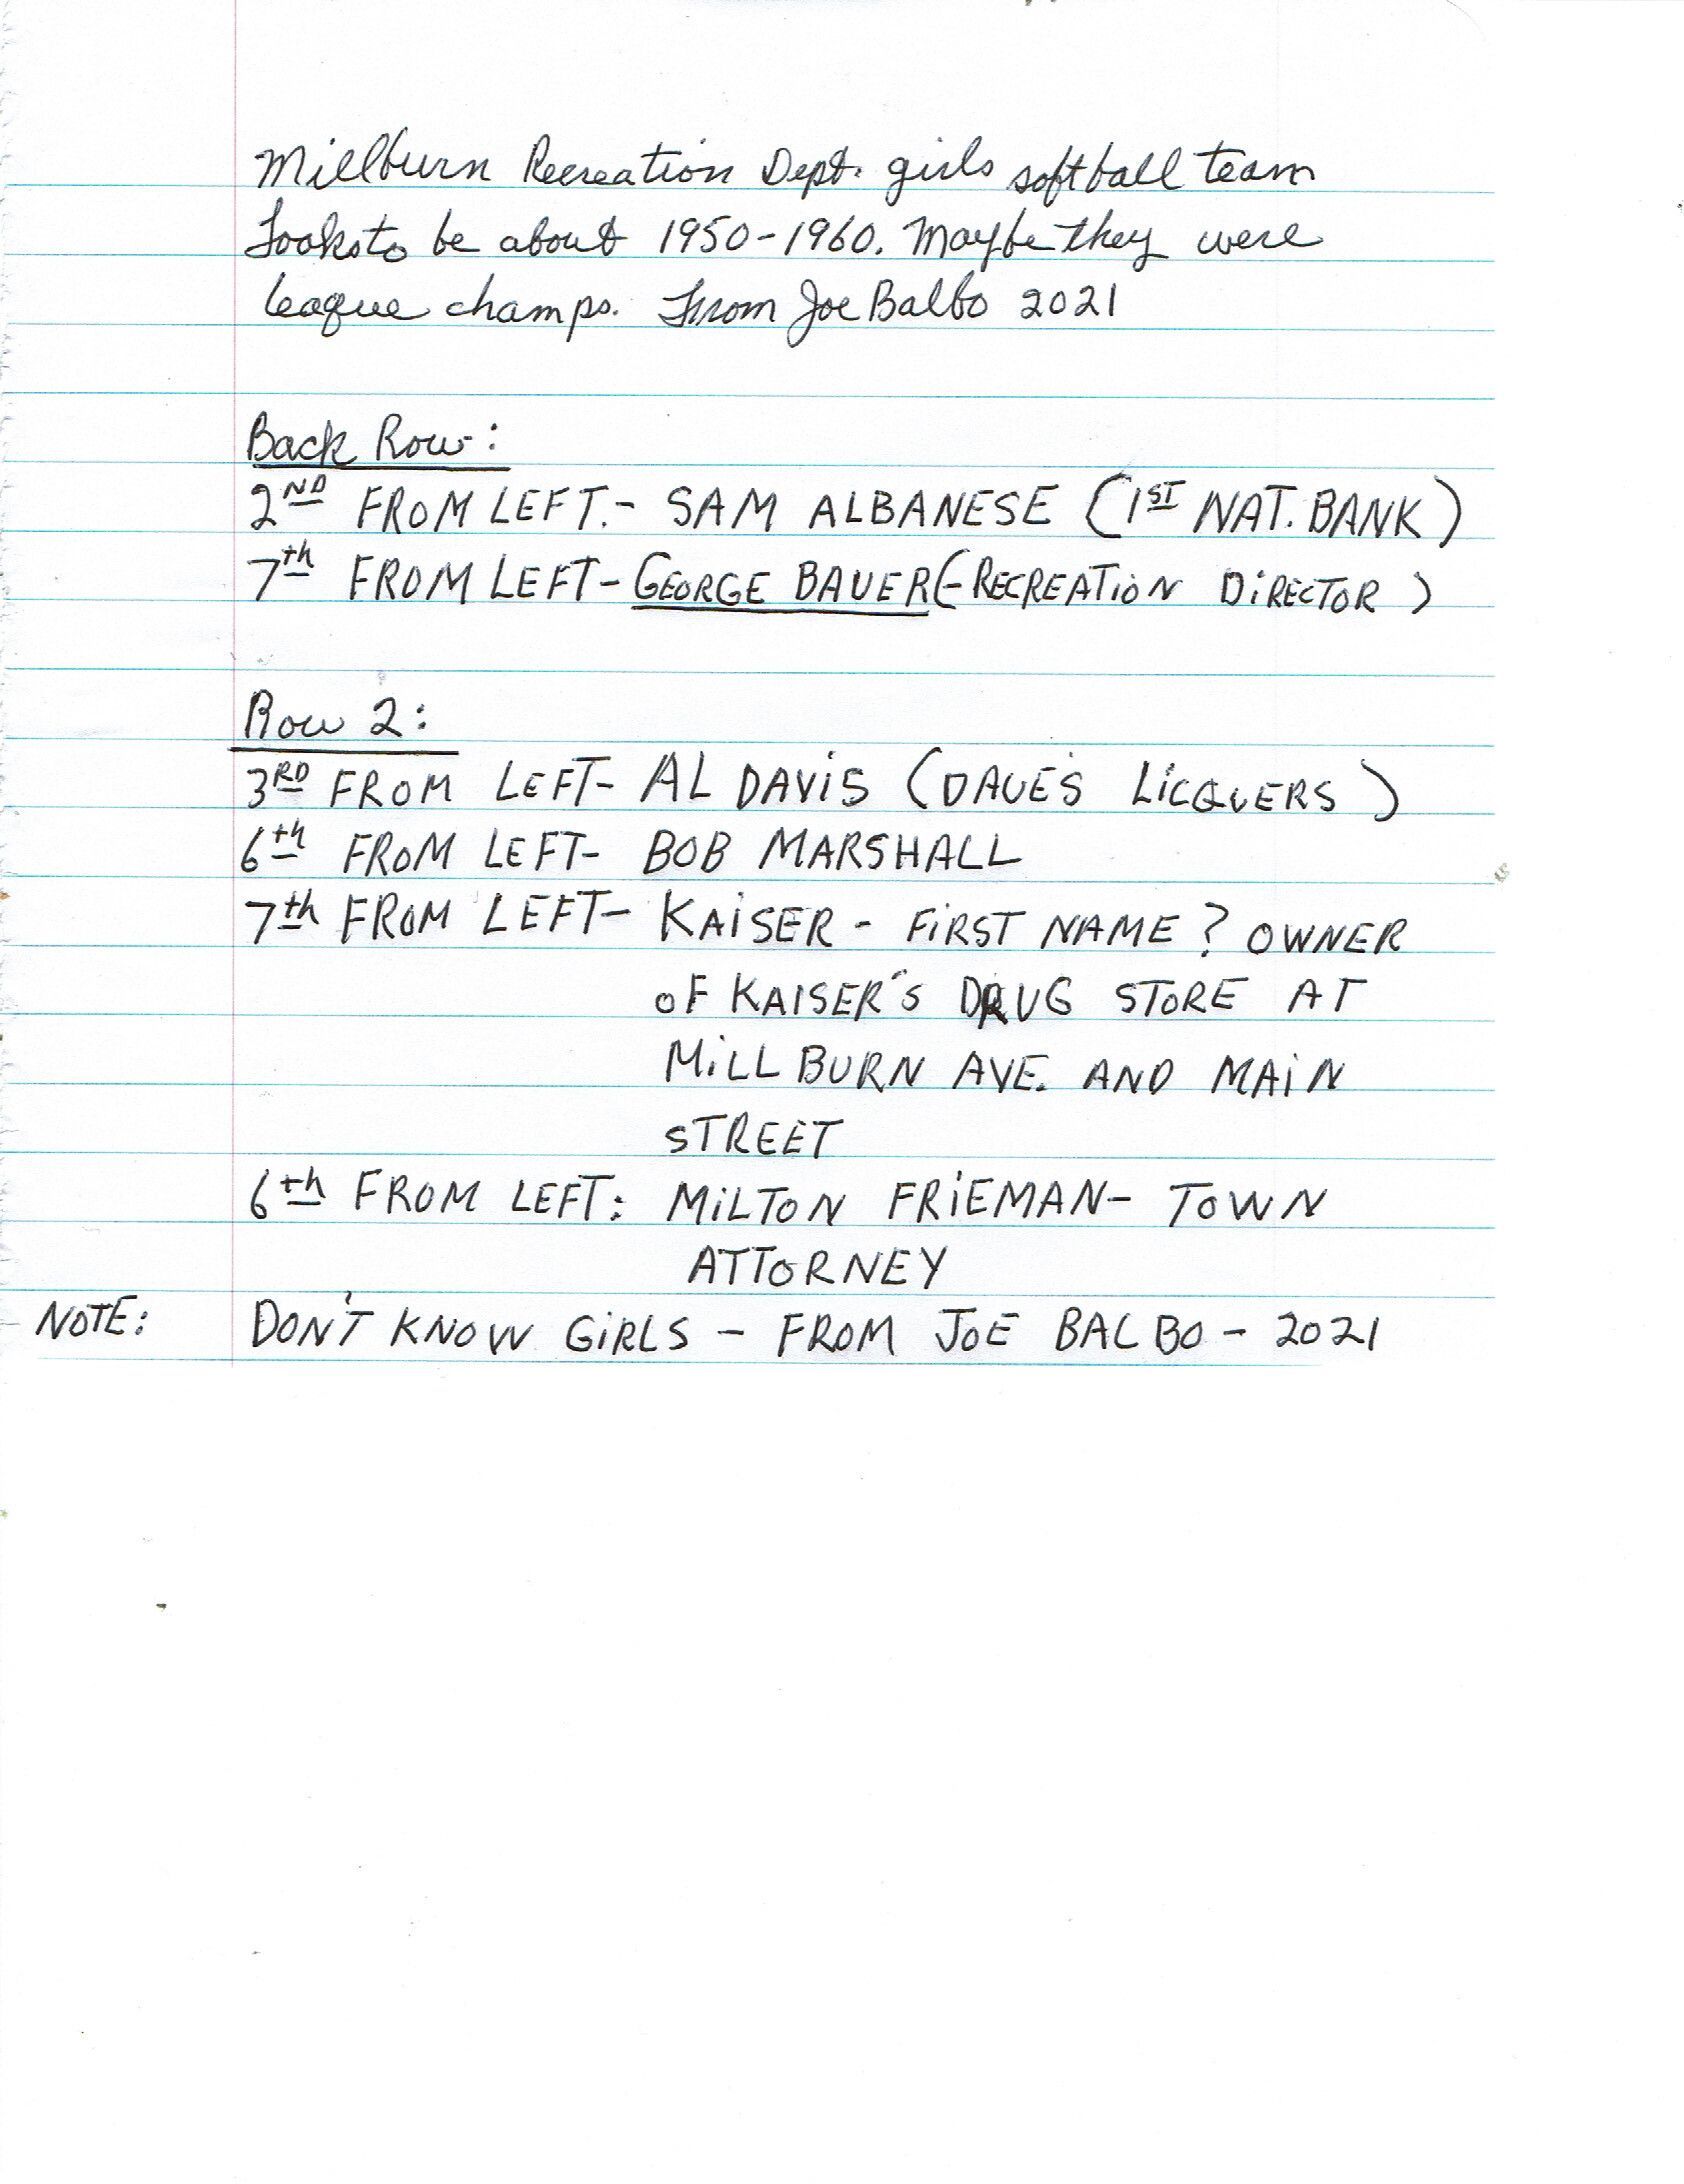 Millburn Recreation Dept. girls softball team
Looks to be about 1950-1960. Maybe they were
league champs. From Joe Balbo 2021
Back Row:
2ND FROM LEFT.- SAM ALBANESE (1ST NAT. BANK)
7th FROM LEFT- GEORGE BAUER (-RECREATION DIRECTOR)
Row 2:
3RD FROM LEFT- AL DAVIS (DAVE'S LICQUERS)
6th FROM LEFT- BOB MARSHALL
7th FROM LEFT- KAISER - FIRST NAME? OWNER
OF KAISER'S DRUG STORE AT
MILLBURN AVE. AND MAIN
STREET
6th FROM LEFT: MILTON FRIEMAN- TOWN
ATTORNEY
NOTE: DON'T KNOW GIRLS - FROM JOE BALBO - 2021